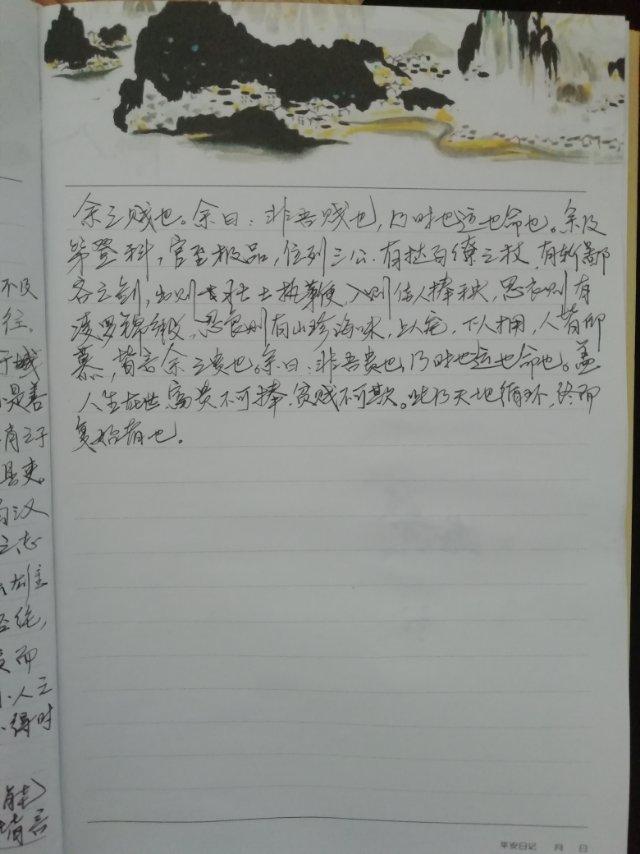 余之贱也。余曰：非吾贱也，乃时也运也命也。余及
第登科，官至极品，位列三公，有挞百僚之杖，有斩鄙
吝之剑，出则壮士执鞭，入则佳人捧秧，思衣则有
凌罗锦缎，思食则有山珍海味，上人宠，下人拥，人皆仰
慕，皆言余之贵也。余曰：非吾贵也，乃时也运也命也。盖
人生在世，富贵不可捧，贫贱不可欺。此乃天地循环，终而
复始者也。
不及
往。
于城
是善
县吏。
汉
之志
雄
绝，
而
小人之
得时
能
皆言
平安日记 月 日